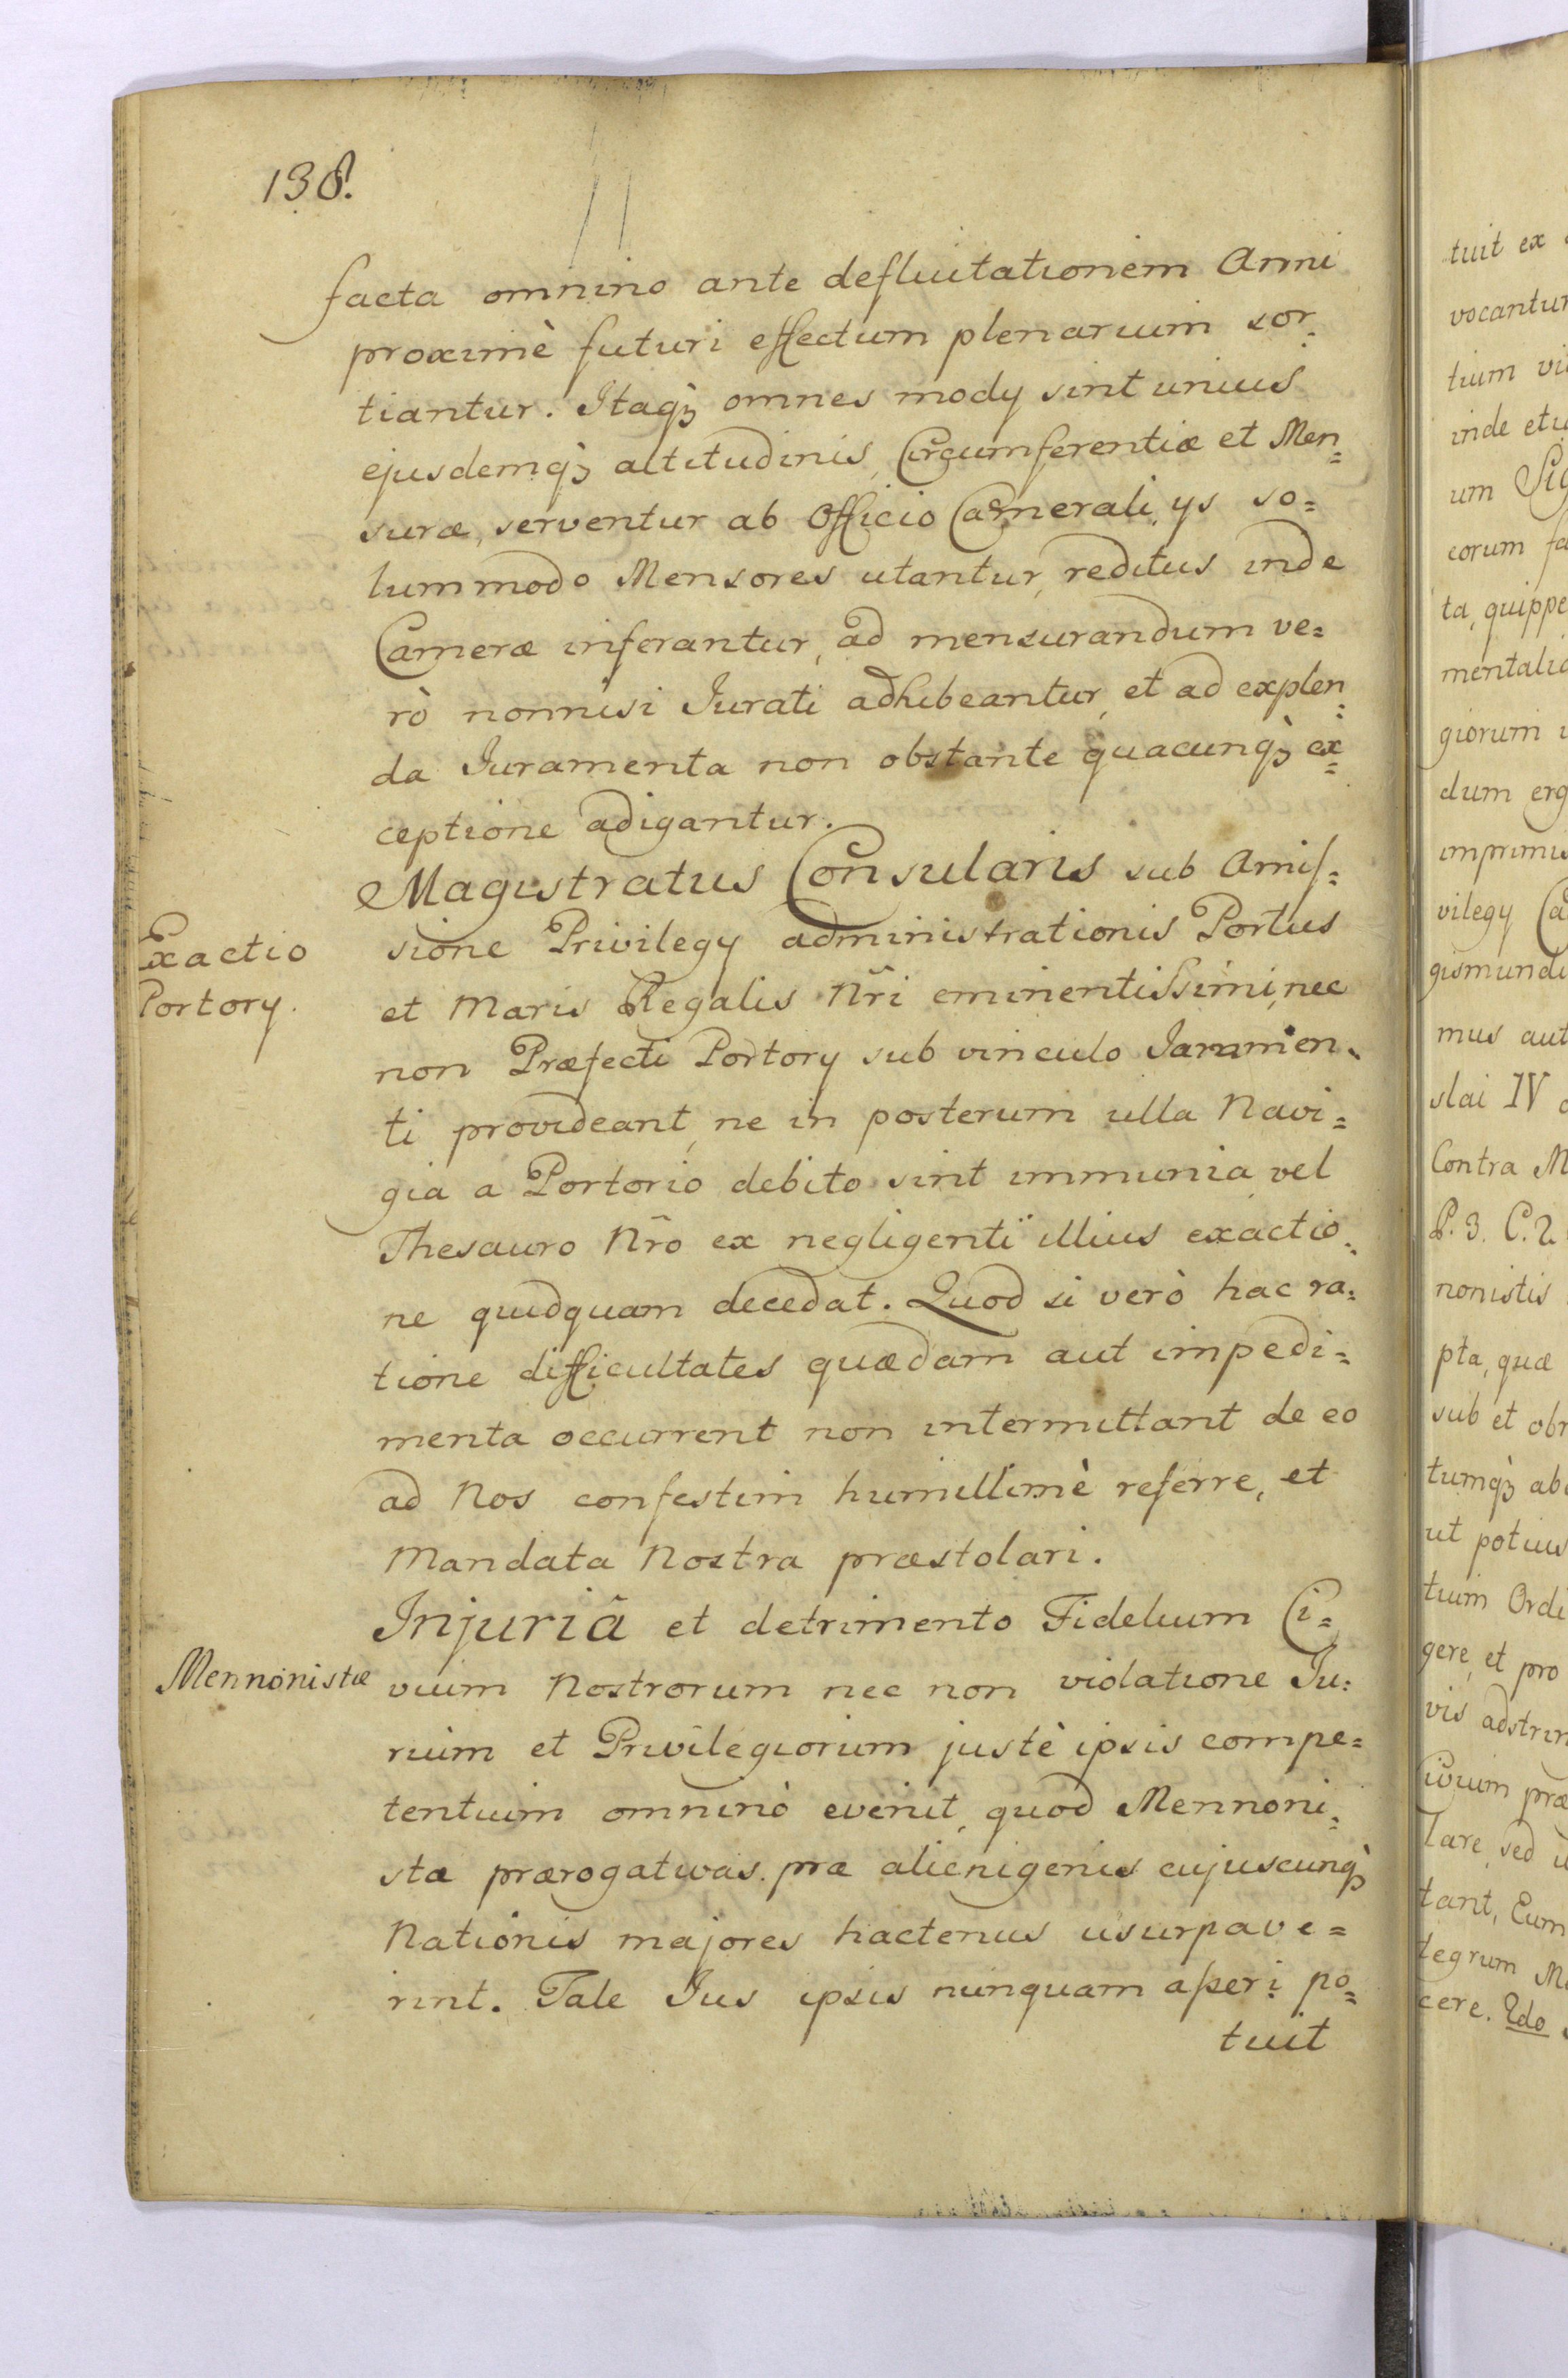 138.
facta omnino ante defluitationem Anni
proximè futuri effectum plenarium sor=
tiantur. Itaq; omnes mody sint unius
ejusdemq; altitudinis, Circumferentiæ et Men=
suræ, serventur ab Officio Camerali, ys so=
lummodo Mensores utantur, reditus inde
Cameræ inferantur, ad mensurandum ve=
rò nonnisi Jurati adhibeantur, et ad explen=
da Juramenta non obstante quacunq; ex=
ceptione adigantur.
Magistratus Consularis sub Amis=
Exactio
Portory.
sione Privilegy administrationis Portus
et Maris Regalis Nr̃i eminentissimi, nec
non Præfecti Portory sub vinculo Juramen=
ti provideant, ne in posterum ulla Navi=
gia a Portorio debito sint immunia, vel
Thesauro Nr̃o ex negligenti illius exactio=
ne quidquam decedat. Quod si verò hac ra=
tione difficultates quædam aut impedi=
menta occurrent non intermittant de eo
ad Nos confestim humillimè referre, et
Mandata Nostra præstolari.
Injuriâ et detrimento Fidelium Ci=
Mennonistæ
vium Nostrorum nec non violatione Ju=
rium et Privilegiorum justè ipsis compe=
tentium omninò evenit, quod Mennoni=
stæ prærogativas præ alienigenis cujuscunq;
Nationis majores hactenus usurpave=
rint. Tale Jus ipsis nunquam asseri po=
tuit
tuit ex
vocantur
tium
inde
um
eorum
ta, quippe
giorum
dum
imprimis
vilegy
gismundi
mus aut
slai IV
Contra M
P. 3. C. 2.
nonistis
pta, quæ
sub et
tumq;
ut potius
tium
gere, et pro
vis
Civium
lare, sed
tant,
tegrum
cere. 2do